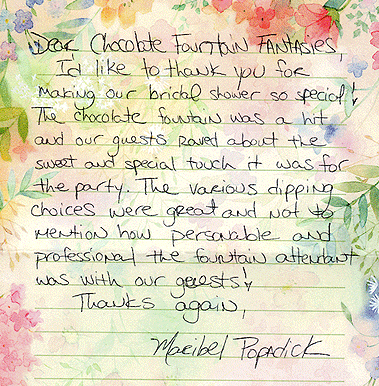 Dear Chocolate Fountain Fantasies,
I'd like to thank you for
making our bridal shower so special!
The chocolate fountain was a hit
and our guests raved about the
sweet and special touch it was for
the party. The various dipping
choices were great and not to
mention how personable and
professional the fountain attendant
was with our guests!
Thanks again,
Maribel Popadick